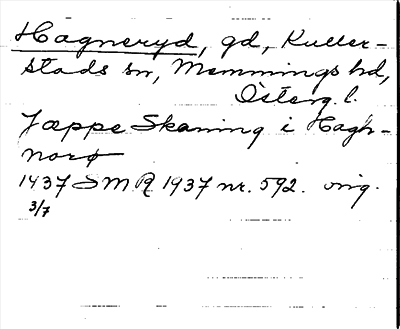 Hagneryd, gd, Kuller-
stads sn, Memmings hd,
Österg. l.
Jæppe Skaning i Hagh-
norø
1437 SMR 1937 nr. 592. orig.
3/7